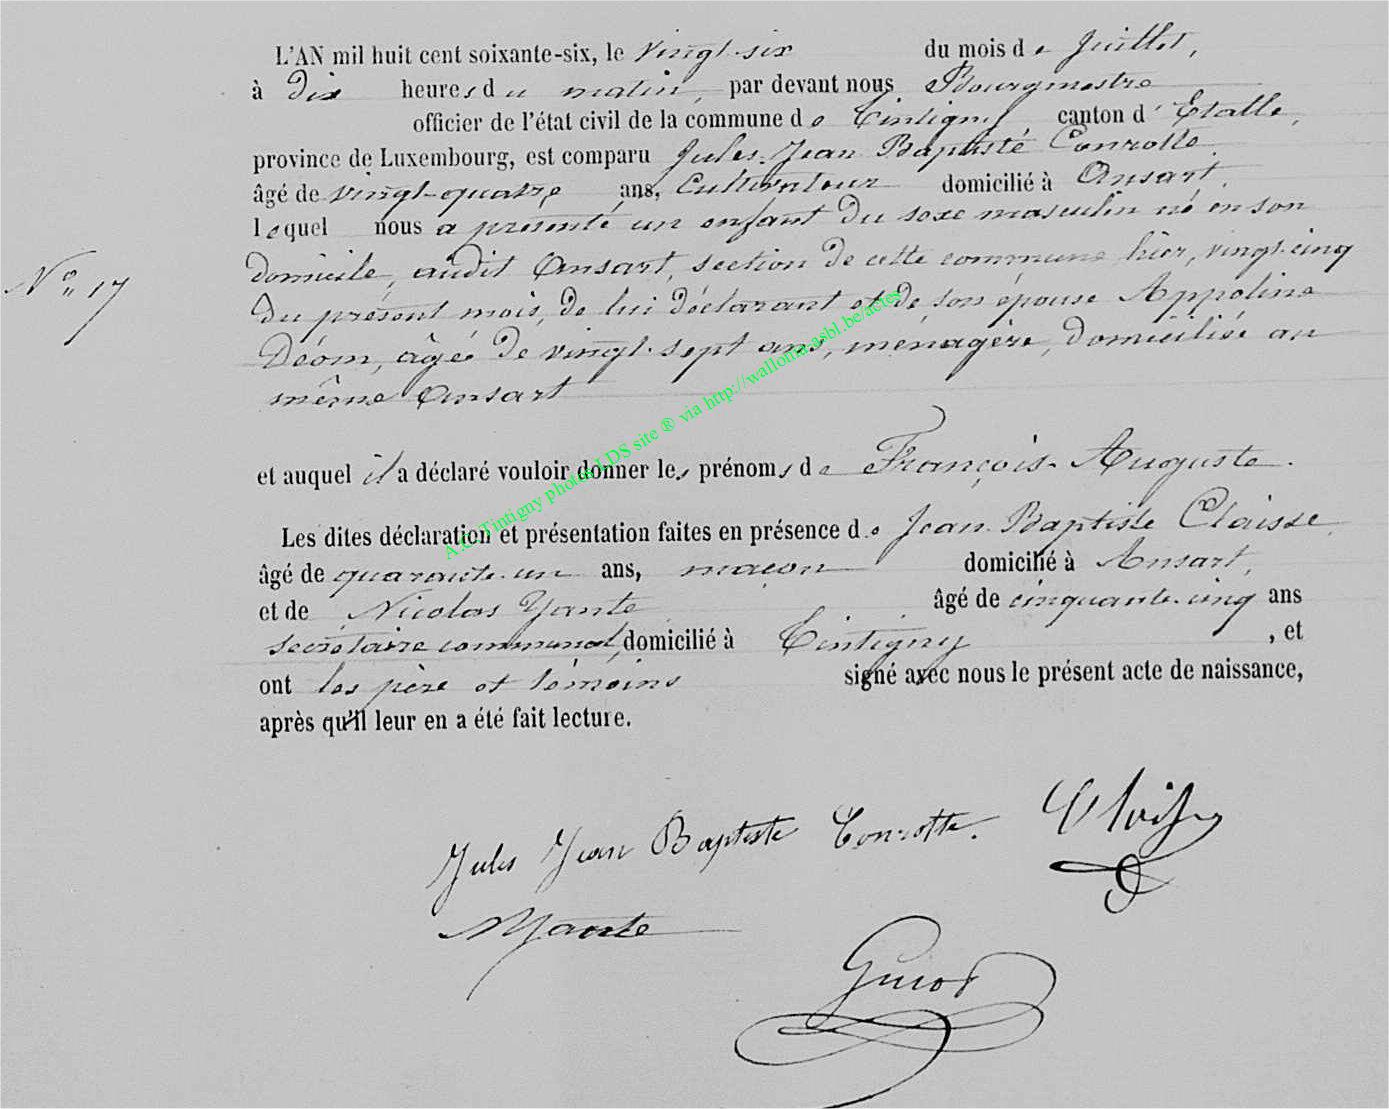 L'AN mil huit cent soixante-six, le vingt-six du mois de Juillet,
à dix heures du matin, par devant nous Bourgmestre
officier de l'état civil de la commune de Tintigny canton d'Etalle,
province de Luxembourg, est comparu Jules Jean Baptiste Conrotte,
âgé de vingt-quatre ans, Cultivateur domicilié à Ansart,
lequel nous a présenté un enfant du sexe masculin né en son
domicile, audit Ansart, section de cette commune hier, vingt-cinq
N° 17
du présent mois, de lui déclarant et de son épouse Appoline
Déom, âgée de vingt-sept ans, ménagère, domiciliée au
même Ansart
et auquel il a déclaré vouloir donner les prénoms de François-Auguste.
Les dites déclaration et présentation faites en présence de Jean-Baptiste Claisse
âgé de quarante-un ans, maçon domicilié à Ansart,
et de Nicolas Yante âgé de cinquante-cinq ans
secrétaire communal, domicilié à Tintigny, et
ont les père et témoins signé avec nous le présent acte de naissance,
après qu'il leur en a été fait lecture.
Jules Jean Baptiste Conrotte. Claisse
NYante
Guiot
A.C. Tintigny photos LDS site ® via http://wallonia-asbl.be/actes